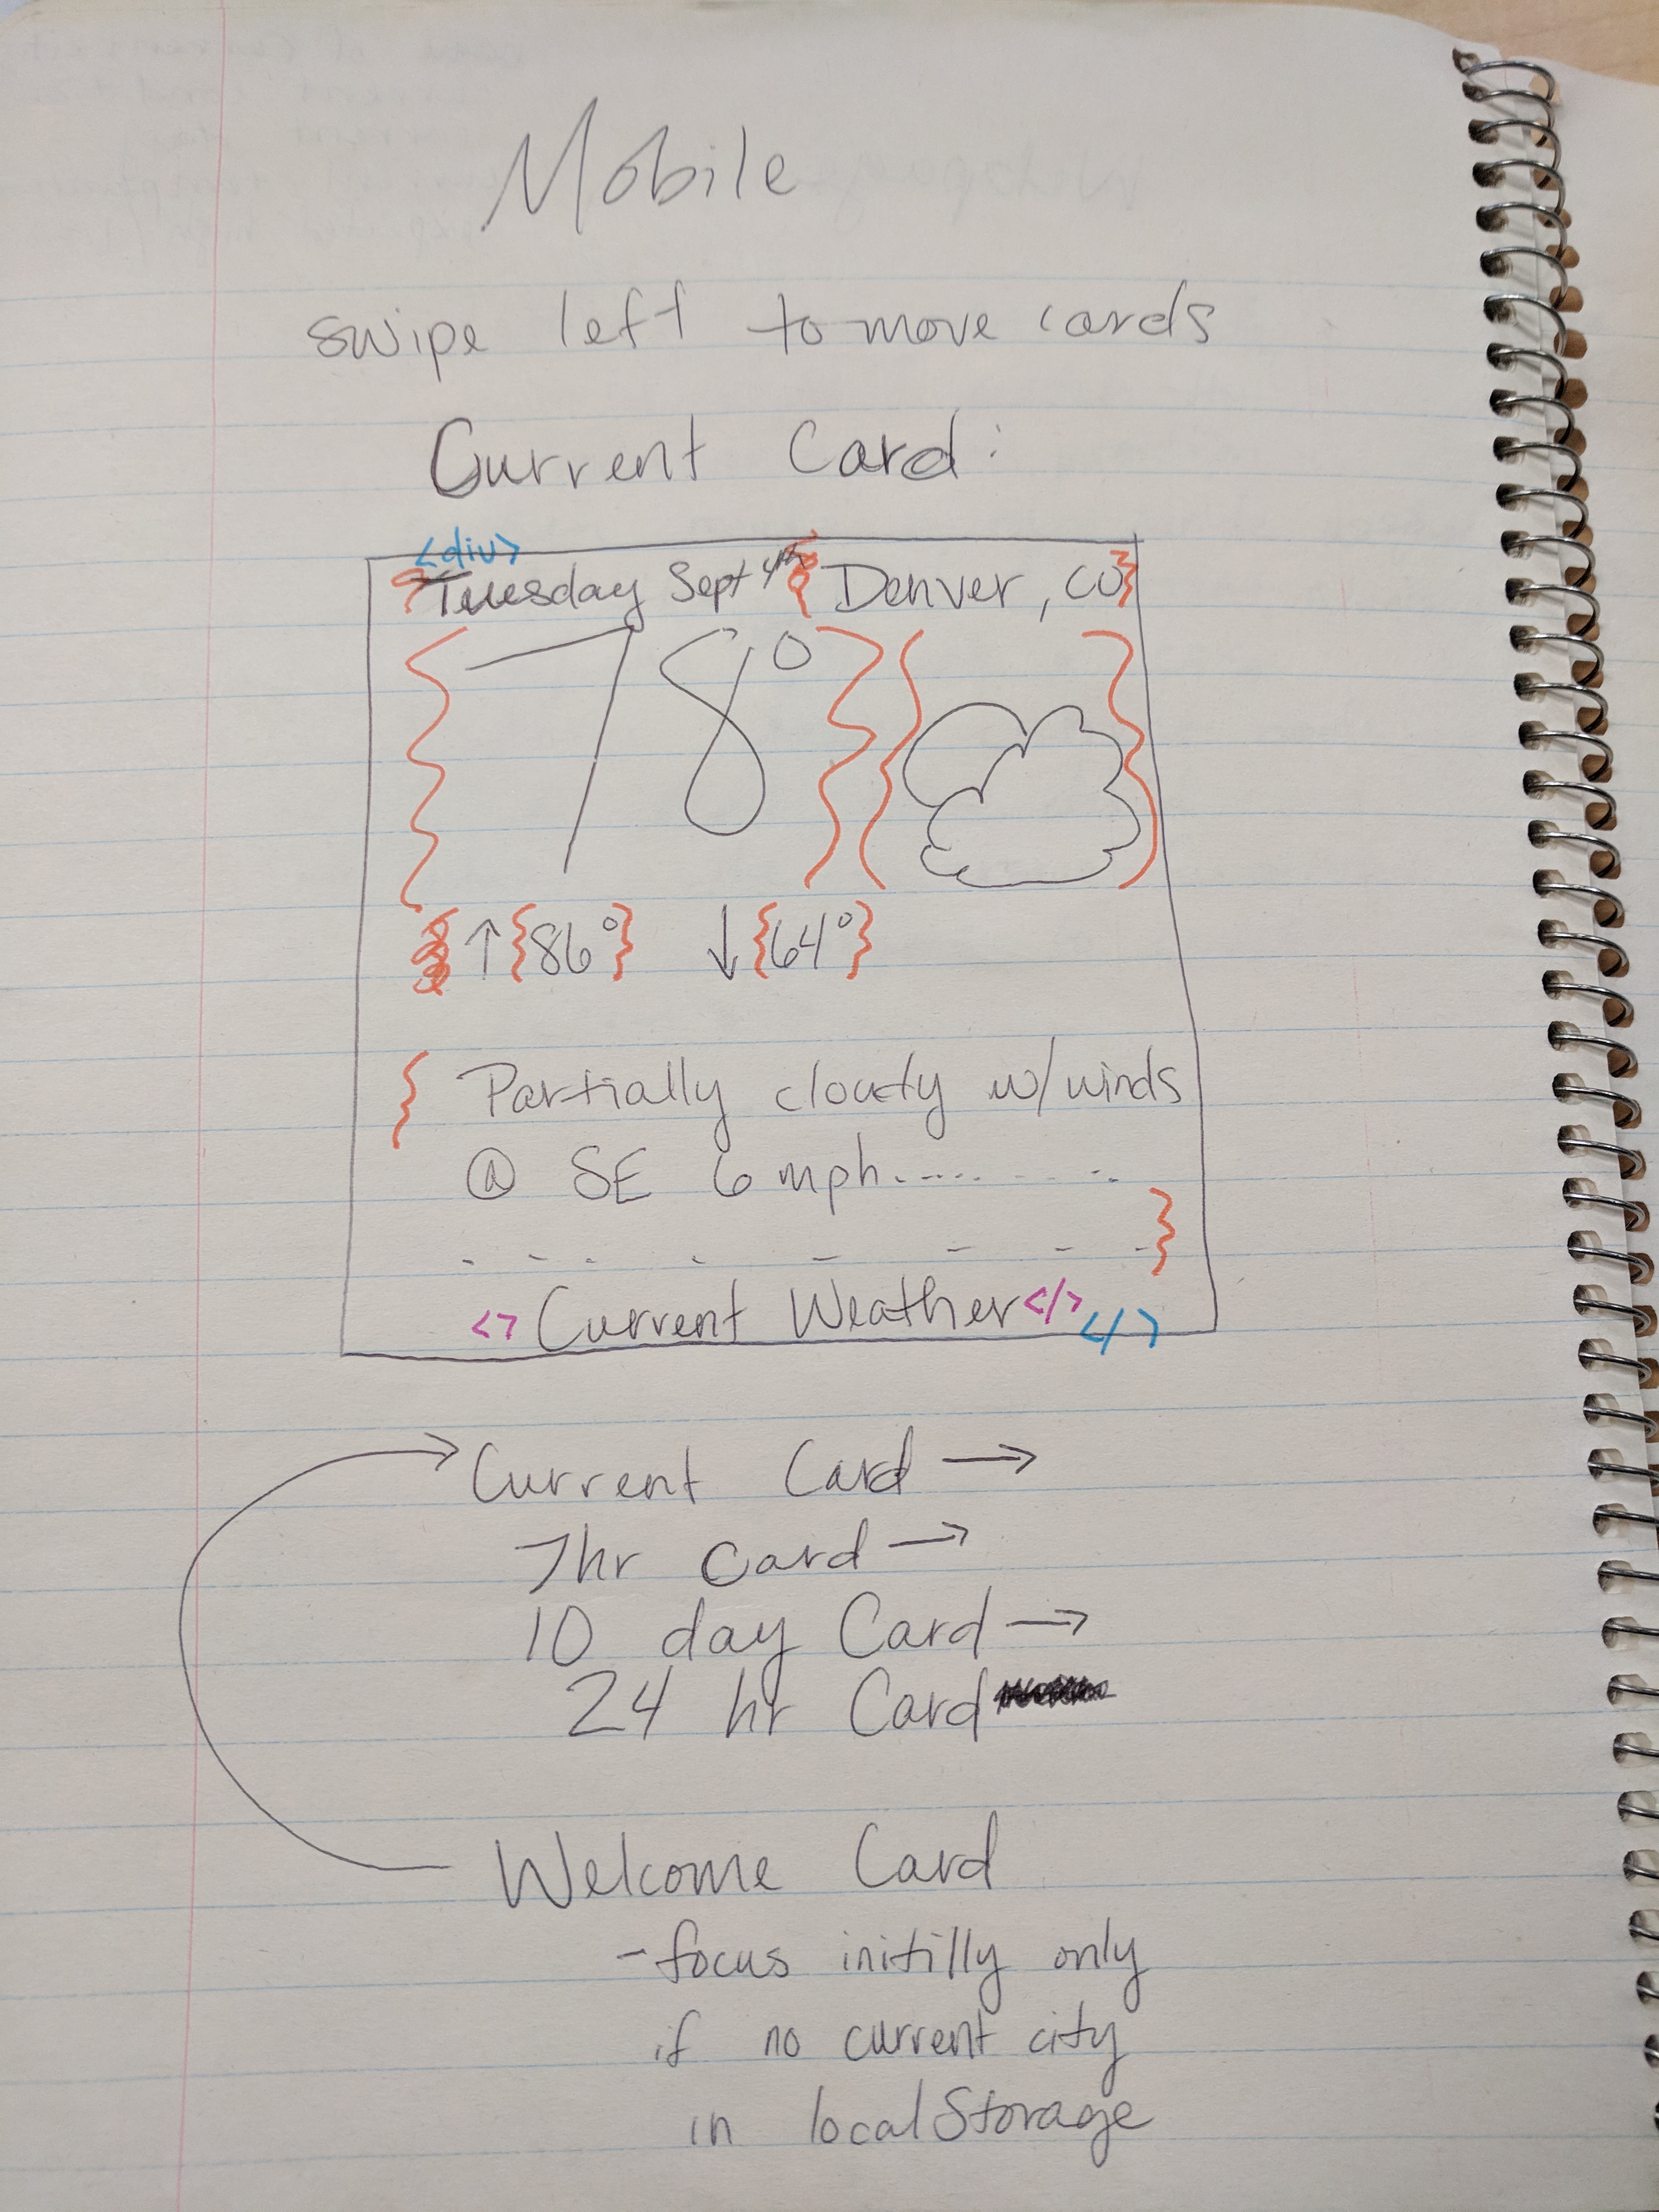 Mobile
swipe left to move cards
Current Card:
<div>
{Tuesday Sept 4th} {Denver, CO}
{78°} { }
↑{86°} ↓{64°}
{ Partially cloudy w/winds
@ SE 6 mph..........
. - - . - - - - }
<> Current Weather </> </>
Current Card →
7hr Card →
10 day Card →
24 hr Card
Welcome Card
- focus initilly only
if no current city
in localStorage